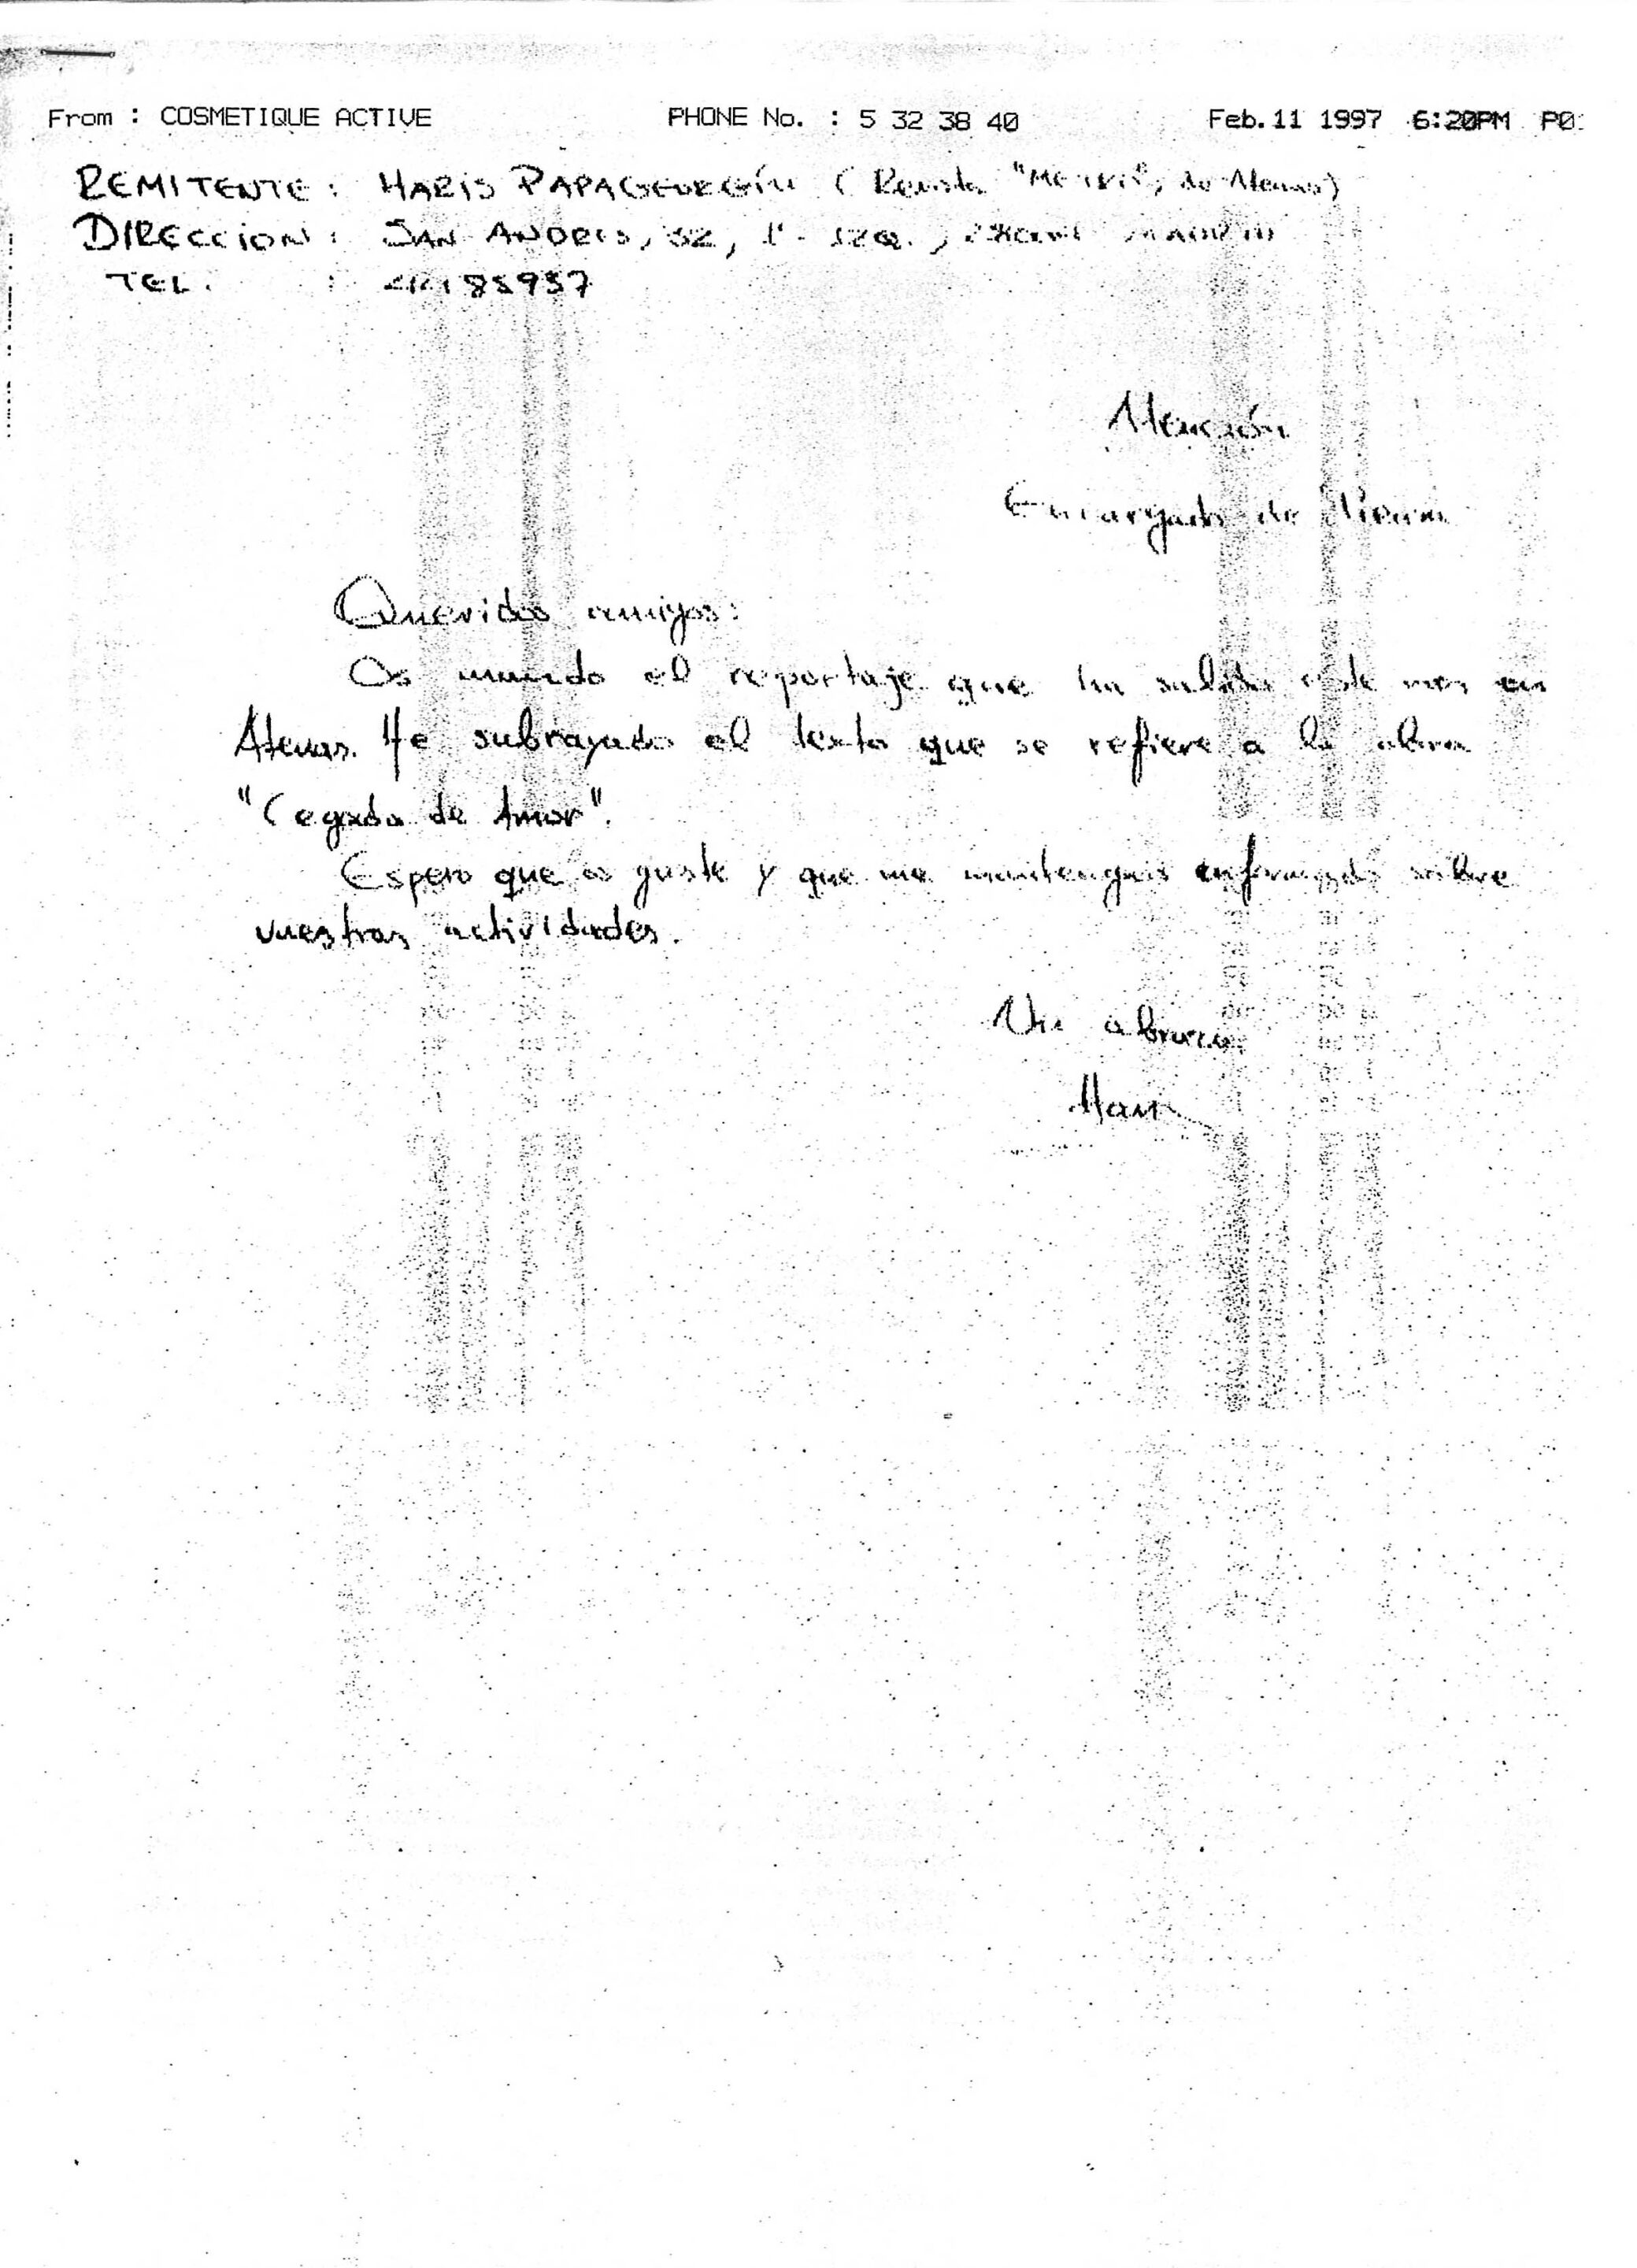 From : COSMETIQUE ACTIVE PHONE No. : 5 32 38 40 Feb.11 1997 6:20PM P0
REMITENTE: HARIS PAPAGEORGÍU (Revista de Atenas)
DIRECCION: SAN ANDRES, 32, 1º IZQ., MADRID
TEL. :
Atención
Encargado de Prensa
Queridos amigos:
Os mando el reportaje que ha salido este mes en
Atenas. He subrayado el texto que se refiere a la obra
"Cegada de Amor".
Espero que os guste y que me mantengáis informado sobre
vuestras actividades.
Un abrazo
Haris